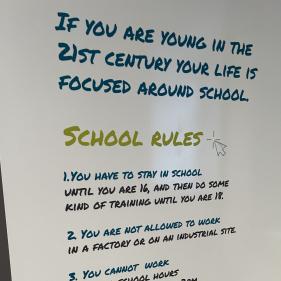 If you are young in the
21st century your life is
focused around school.
School rules
1. You have to stay in school
until you are 16, and then do some
kind of training until you are 18.
2. You are not allowed to work
in a factory or on an industrial site.
3. You cannot work
school hours